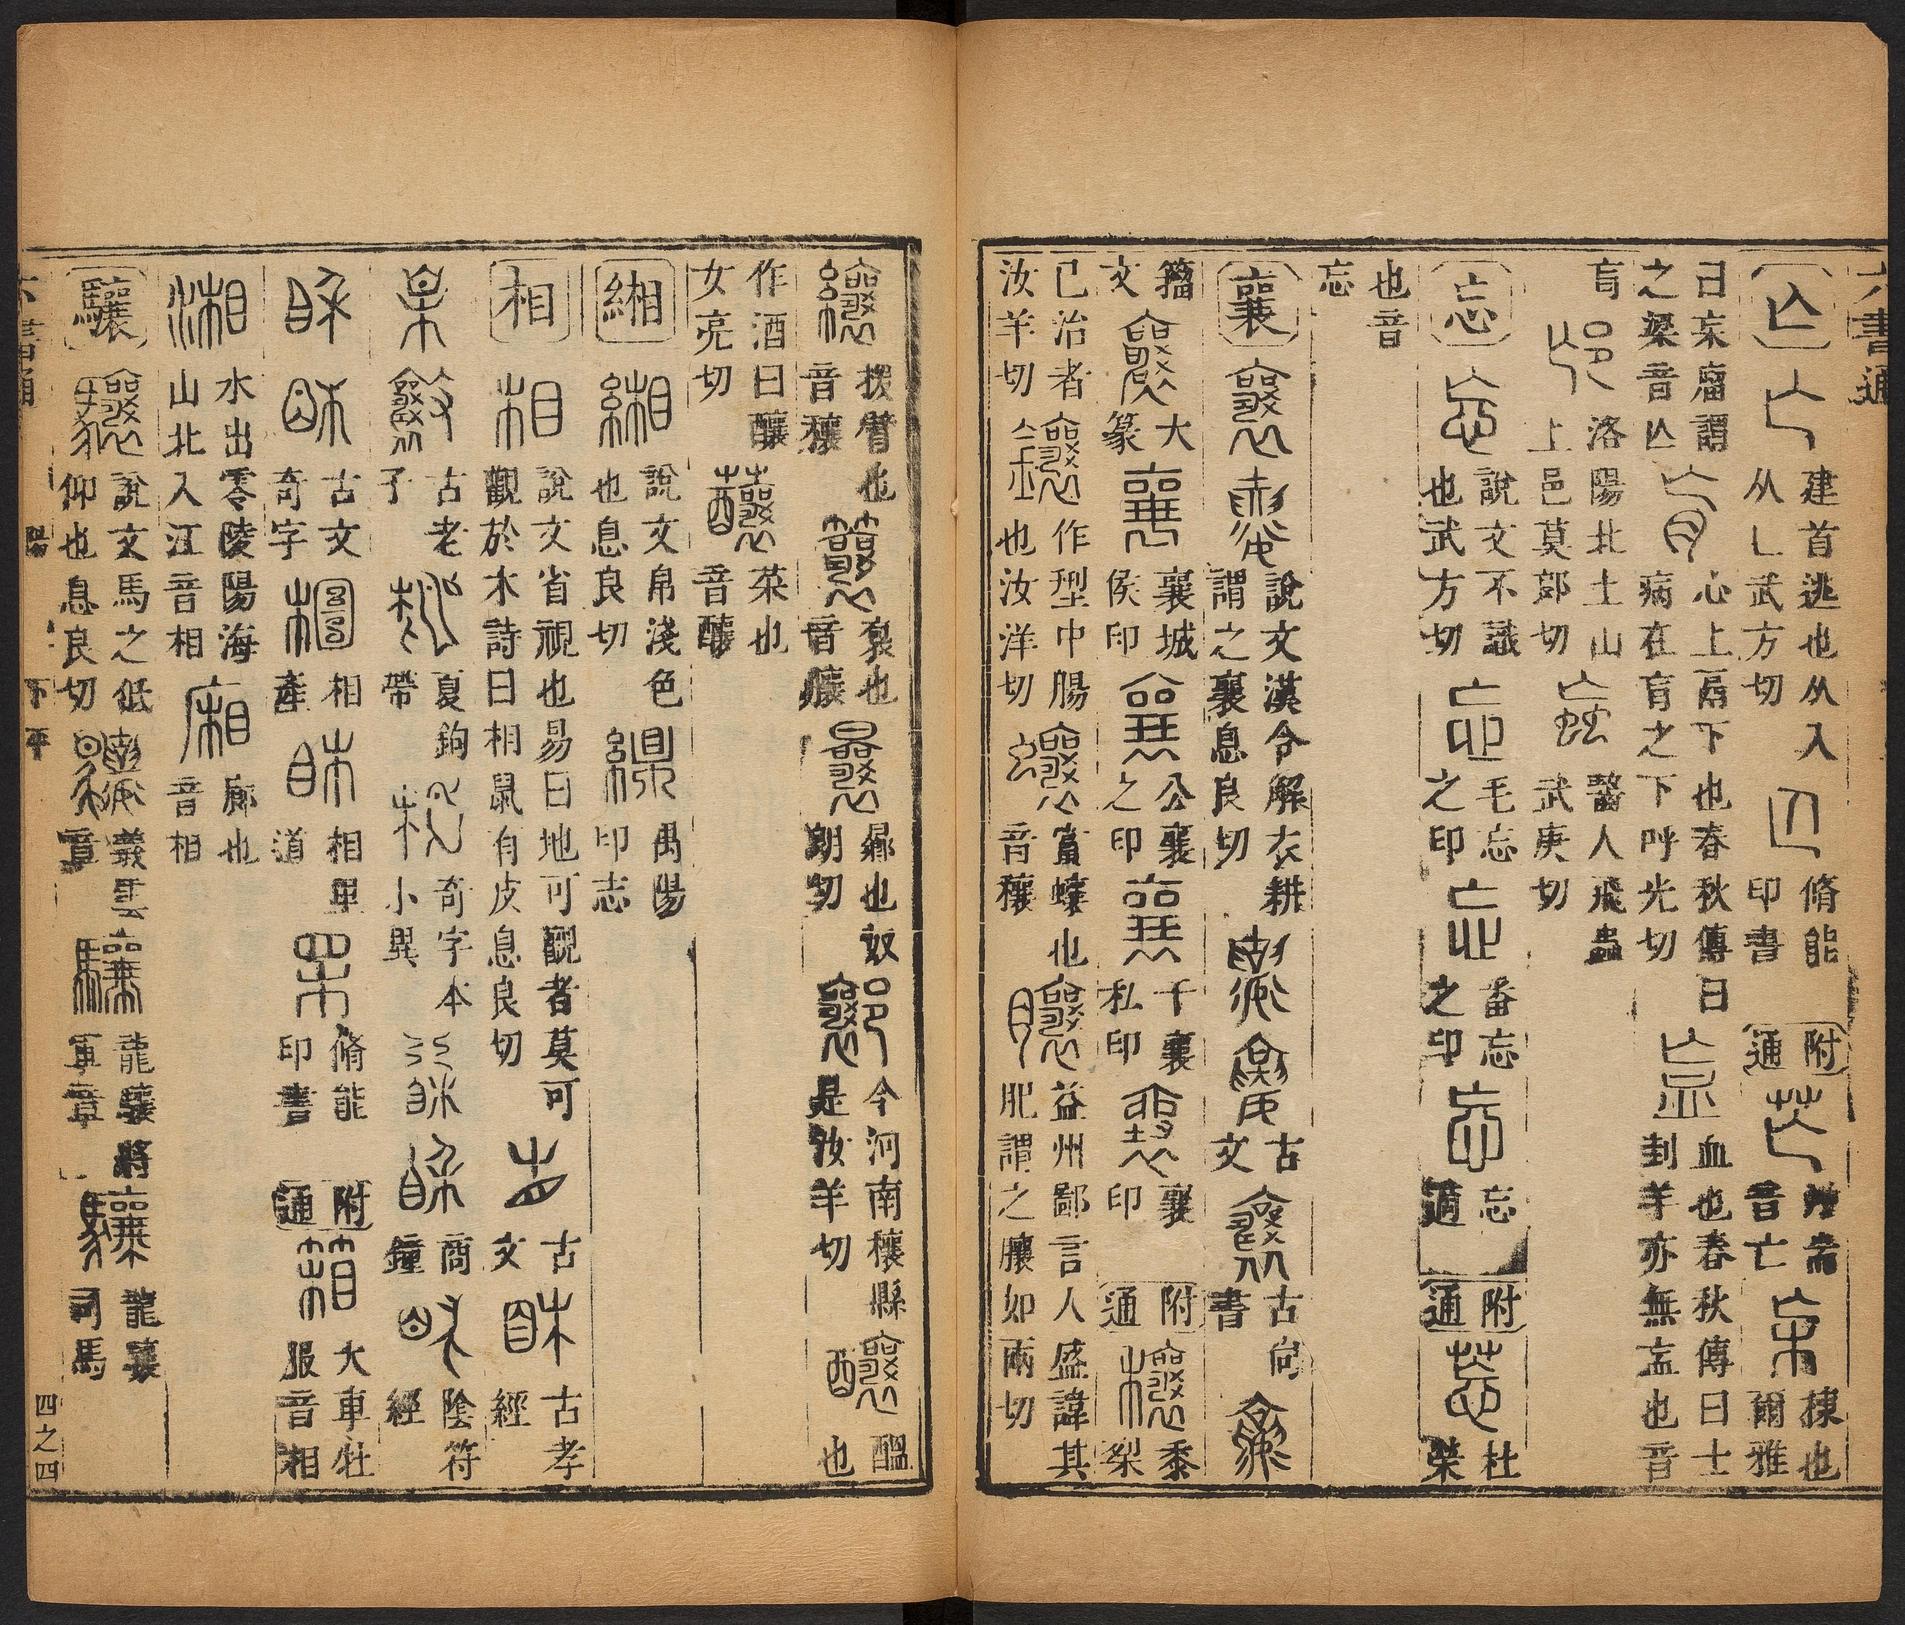 六書通
亾 建首逃也从入从乚武方切 脩能印書 附通 音亡 棟也爾雅
曰杗廇謂之梁音亾 心上鬲下也春秋傳曰病在肓之下呼光切 血也春秋傳曰士刲羊亦無衁也音
肓 洛陽北土山上邑莫郎切 醫人飛蟲武庚切
忘 說文不識也武方切 毛忘之印 番忘之印 忘通 附通 杜榮
也音忘
襄 說文漢令解衣耕謂之襄息良切 古文 古尚書
籀文 大篆 襄城侯印 公襄之印 千襄私印 襄印 附通 黍梨
已治者汝羊切 作型中腸也汝洋切 蠰也音穰 益州鄙言人盛諱其肥謂之䑋如兩切
援臂也音穰 裒也音䑋 曏也奴朗切 今河南穰縣是汝羊切 醞也
作酒曰釀女亮切 菜也音釀
緗 說文帛淺色也息良切 禺陽印志
相 說文省視也易曰地可觀者莫可觀於木詩曰相鼠有皮息良切 古文 古孝經
古老子 夏鉤帶 奇字本小異 商鐘 陰符經
古文奇字 相產 相里道 脩能印書 附通 大車牡服音相
湘 水出零陵陽海山北入江音相 廊也音相
驤 說文馬之低仰也息良切 義雲章 龍驤將軍章 龍襄司馬
六書通 陽 下平 四之四